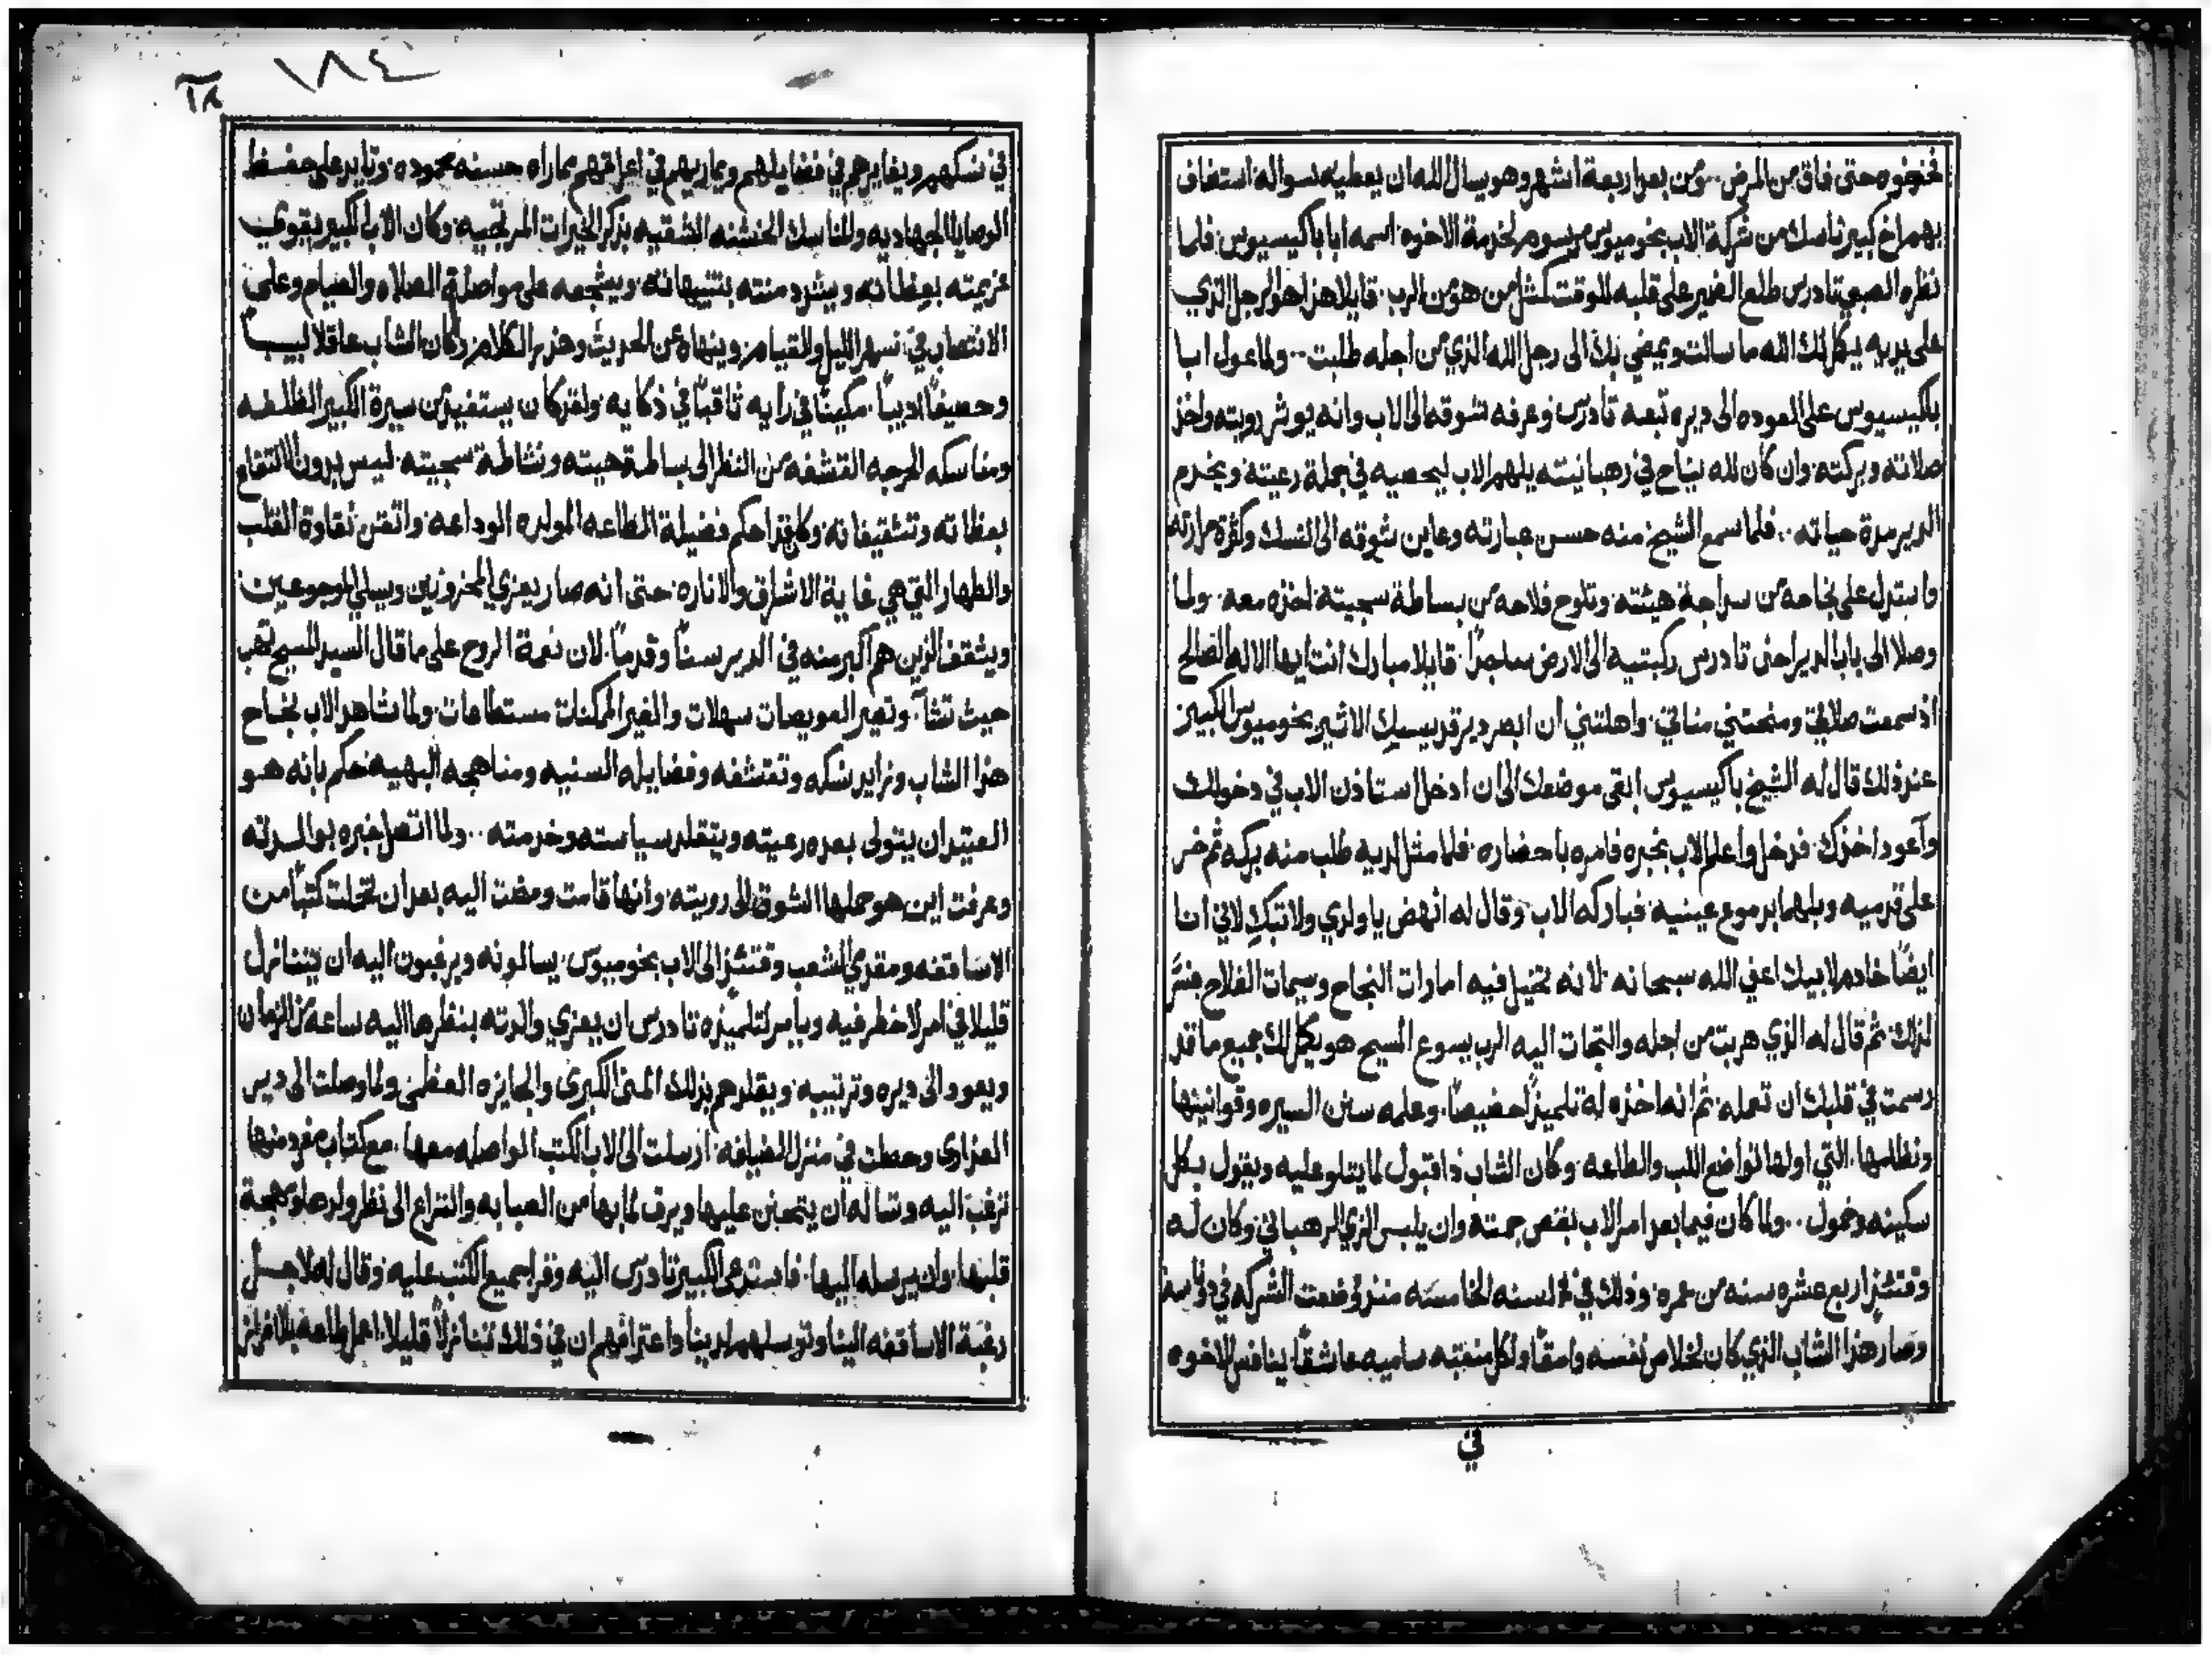 فخضوه حتى فاق من المرض ·· ومن بعد اربعة اشهر وهو يسال الله ان يعطيه سواله استضاف
بهم اخ كبير ناسك من شركة الاب بخوميوس مرسوم لخدمة الاخوه اسمه ابا باكيسيوس فلما
نظره الصبي تادرس طلع الضمير على قلبه للوقت كمثل من هو من الرب قايلا هذا هو الرجل الذي
على يديه يكمل لك الله ما سالت ويمضي بك الى رجل الله الذي من اجله طلبت ·· ولما عول ابا
باكيسيوس على العوده الى ديره تبعه تادرس وعرفه شوقه الى الاب وانه يوثر رويته واخذ
صلاته وبركته وان كان لله بنياح في رهبانيته يلهم الاب ليحصيه في جملة رعيته ويخدم
الدير مدة حياته ·· فلما سمع الشيخ منه حسن عبارته وعاين شوقه الى النسك وكثرة حرارته
واستدل على نجاحه من سداجة هيئته وتلوح فلاحه من بساطة سجيته اخذه معه ولما
وصلا الى باب الدير احنى تادرس ركبتيه الى الارض ساجدا قايلا مبارك انت ايها الاله الصالح
اذ سمعت صلاتي ومنحتني مناتي واهلتني ان ابصر دير قديسيك الاثير بخوميوس الكبير
عند ذلك قال له الشيخ باكيسيوس ابقى موضعك الى ان ادخل استاذن الاب في دخولك
وآعود اخذك فدخل واعلم الاب بخبره فامره باحضاره فلما مثل لديه طلب منه بركه ثم خر
على قدميه وبلهما بدموع عينيه فباركه الاب وقال له انهض يا ولدي ولا تبكِ لاني انا
ايضًا خادم لابيك اعني الله سبحانه لانه تخيل فيه امارات النجاح وسيمات الفلاح فسر
لذلك ثم قال له الذي هربت من اجله والتجات اليه الرب يسوع المسيح هو يكمل لك جميع ما قد
رسمت في قلبك ان تعمله ثم انه اخذه له تلميذًا خصيصًا وعلمه سنن السيره وقوانينها
ونظامها التي اولها تواضع اللب والطاعه وكان الشاب ذا قبول لما يتلو عليه ويقول بكل
سكينه وخمول ·· ولما كان فيما بعد امر الاب بقص جمته وان يلبس الزي الرهباني وكان له
وقتئذ اربع عشره سنه من عمره وذلك في السنه الخامسه منذ وضعت الشركه في دوناسه
وصار هذا الشاب الذي كان لخلاص نفسه وامقًا ولكل منقبه ساميه عاشقًا ينافس الاخوه
في
١٨٤
في نسكهم ويغايرهم في فضايلهم ويماريهم في اعراقهم بما راه حسنه محموده وتايد على حفظ
الوصايا الجهاديه والمناسك الخشنه الشقيه بذكر الخيرات المرتجيه وكان الاب الكبير يقوي
عزيمته بعظاته ويشرد منته بتنبيهاته ويشجعه على مواصلة الصلاه والصيام وعلى
الانتصاب في سهر الليل والقيام وينهاه عن الحديث وهذر الكلام وكان الشاب عاقلا لبيبًا
وحصيفًا اديبًا مكينًا في رايه ثاقبًا في ذكايه ولقد كان يستفيد من سيرة الكبير الظلفه
ومناسكه الحرجه القشفه من النظر الى بساطة هيئته ونشاطة سجيته ليس بدون الانتفاع
بعظاته وتثقيفاته وكان قد احكم فضيلة الطاعه المولده الوداعه واتقن نقاوة القلب
والطهار التي هي غاية الاشراق والاناره حتى انه صار يعزي المحزونين ويسلي الموجوعين
ويثقف الذين هم اكبر منه في الدير سنًا وقدمًا لان نعمة الروح على ما قال السيد المسيح تهب
حيث تشآ وتصير العويصات سهلات والغير الممكنات مستطاعات ولما شاهد الاب نجاح
هذا الشاب وتزايد نسكه وتقشفه وفضايله السنيه ومناهجه البهيه حكم بانه هو
العتيد ان يتولى بعده رعيته ويتقلد سياسته وخدمته ·· ولما اتصل خبره بوالدته
وعرفت اين هو حملها الشوق الى رويته وانها قامت ومضت اليه بعد ان تنحلت كتبًا من
الاساقفه ومقدمي الشعب وقتئذ الى الاب بخوميوس يسالونه ويرغبون اليه ان يتنازل
قليلا في امر لا خطر فيه ويامر لتلميذه تادرس ان يعزي والدته بنظرها اليه ساعه من الزمان
ويعود الى ديره وترتيبه ويقلدهم بذلك المنن الكبرى والجايزه العظمى ولما وصلت الى دير
العذارى وحصلت في منزل الضيافه ارسلت الى الاب الكتب المواصله معها مع كتاب مفرد منها
ترغب اليه وتساله ان يتحنن عليها ويرق لما بها من الصبابه والنزاع الى نظر ولدها ومهجة
قلبها وان يرسله اليها فاستدعى الكبير تادرس اليه وقرا جميع الكتب عليه وقال له لاجل
رغبة الاساقفه الينا وتوسلهم لدينا واعترافهم ان في ذلك تنازلًا قليلا اعمل طاعه بلا افراز